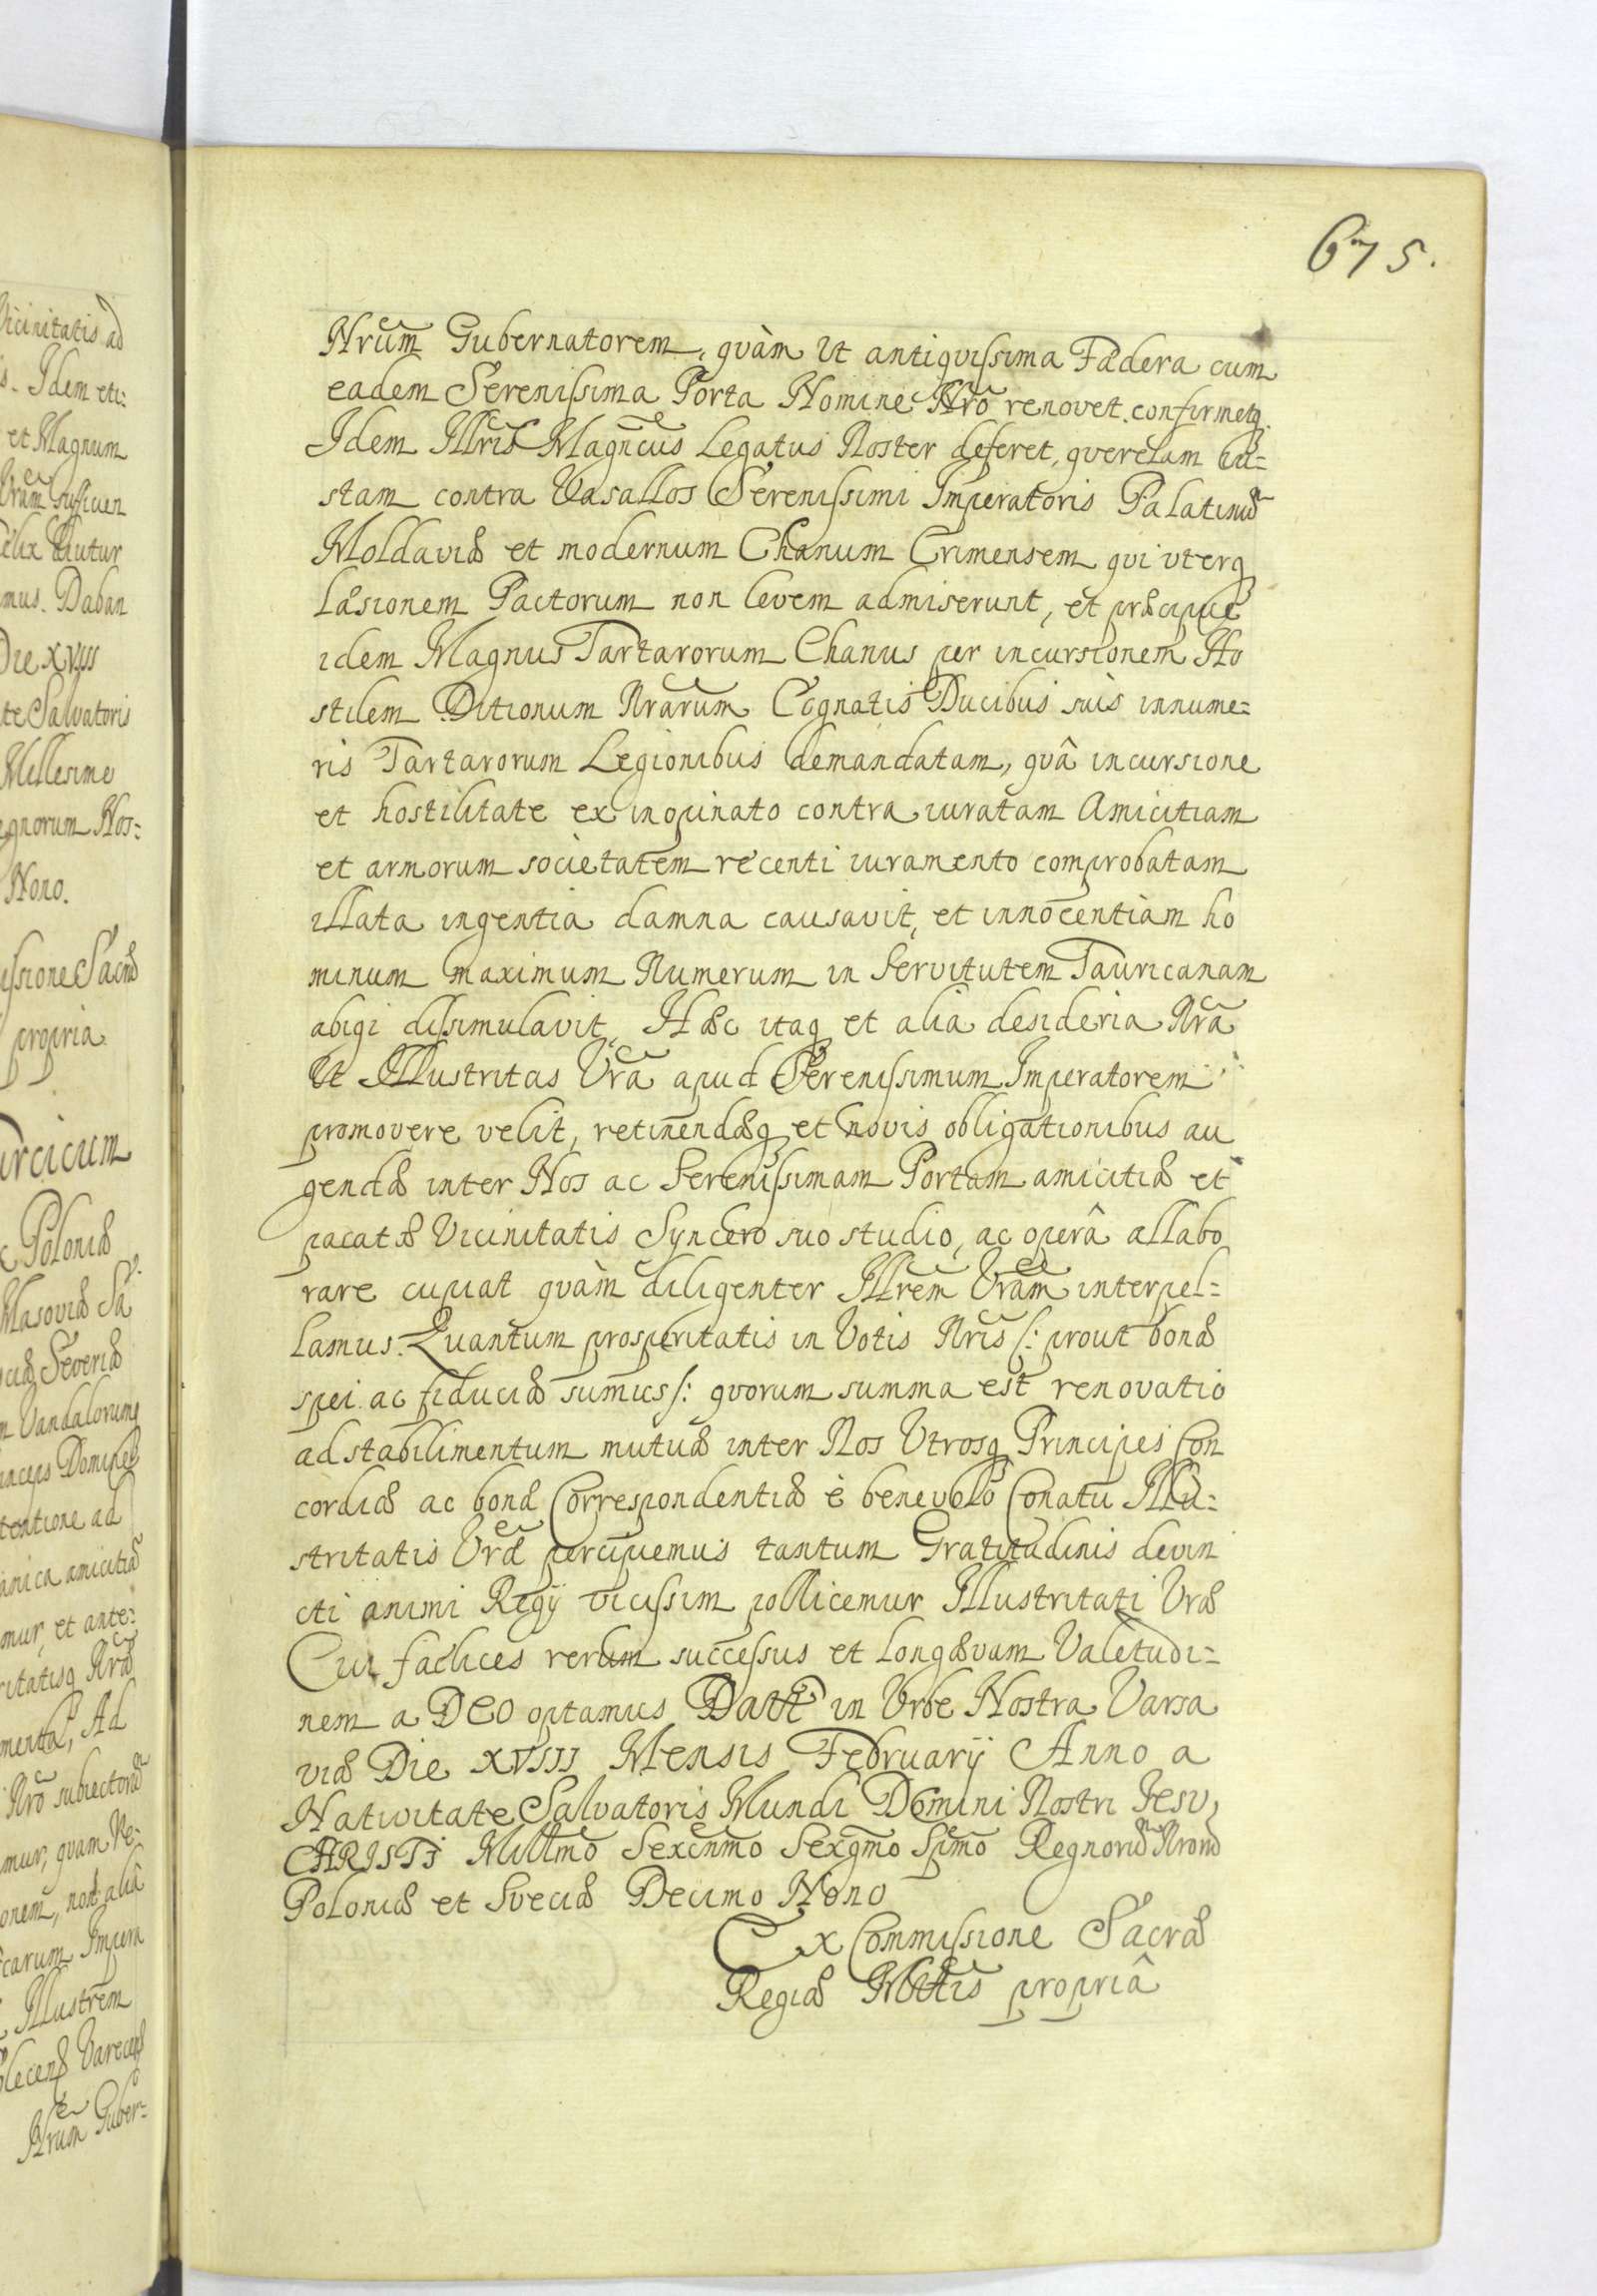 675.
Nrũm Gubernatorem, quàm ut antiquissima Fædera cum
eadem Serenissima Porta Nomine Nrõ renovet, confirmetq.
Idem Illris Magncus Legatus Noster deferet, querelam iu=
stam contra Vasallos Serenissimi Imperatoris Palatinũ
Moldaviæ et modernum Chanum Crimensem qui uterq
læsionem Pactorum non levem admiserunt, et præcipue
idem Magnus Tartarorum Chanus per incursionem Ho
stilem Ditionum Nrarum Cognatis Ducibus suis innume=
ris Tartarorum Legionibus demandatam, quâ incursione
et hostilitate ex inopinato contra iuratam Amicitiam
et armorum societatem recenti iuramento comprobatam
illata ingentia damna causavit, et innocentiam ho
minum maximum Numerum in servitutem Tauricanam
abigi dissimulavit, Hæc itaq et alia desideria Nrã
Ut Illustritas Vrã apud Serenissimum Imperatorem
promovere velit, retinendæq et novis obligationibus au
gendæ inter Nos ac Serenissimam Portam amicitiæ et
pacatæ Vicinitatis Syncero suo studio, ac operâ allabo
rare cupiat quàm diligenter Illrem Vram interpel=
lamus. Quantum prosperitatis in Votis Nris /: prout bonæ
spei ac fiduciæ sumus /: quorum summa est renovatio
ad stabilimentum mutuæ inter Nos Utrosq Principes Con
cordiæ ac bonæ Correspondentiæ è benevolo Conatu Illu=
stritatis Vræ percipiemus tantum Gratitudinis devin
cti animi Regij vicissim pollicemur Illustritati Vræ
Cui fælices rerum successus et longævam Valetudi=
nem a DEO optamus Datt in Urbe Nostra Varsa
viæ Die XVIII Mensis Februarij Anno a
Nativitate Salvatoris Mundi Domini Nostri Iesu,
CHRISTI Millmo Sexcnmo Sexgmo Spmo Regnorũ Nrorũ
Poloniæ et Sveciæ Decimo Nono
Ex Commissione Sacræ
Regiæ Mttis propriâ